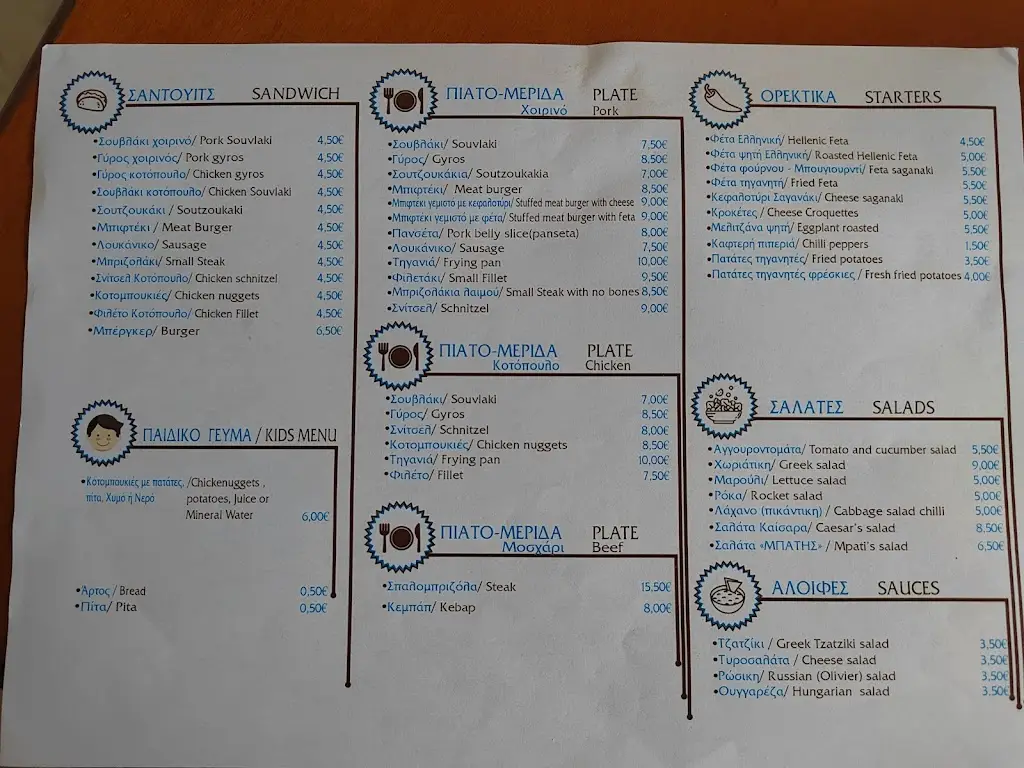 ΣΑΝΤΟΥΙΤΣ SANDWICH
•Σουβλάκι χοιρινό/ Pork Souvlaki 4,50€
•Γύρος χοιρινός/ Pork gyros 4,50€
•Γύρος κοτόπουλο/ Chicken gyros 4,50€
•Σουβλάκι κοτόπουλο/ Chicken Souvlaki 4,50€
•Σουτζουκάκι / Soutzoukaki 4,50€
•Μπιφτέκι / Meat Burger 4,50€
•Λουκάνικο/ Sausage 4,50€
•Μπριζολάκι/ Small Steak 4,50€
•Σνίτσελ Κοτόπουλο/ Chicken schnitzel 4,50€
•Κοτομπουκιές/ Chicken nuggets 4,50€
•Φιλέτο Κοτόπουλο/ Chicken Fillet 4,50€
•Μπέργκερ/ Burger 6,50€
ΠΑΙΔΙΚΟ ΓΕΥΜΑ / KIDS MENU
•Κοτομπουκιές με πατάτες, /Chickenuggets ,
πίτα, Χυμο ή Νερό potatoes, Juice or
Mineral Water 6,00€
•Άρτος/ Bread 0,50€
•Πίτα/ Pita 0,50€
ΠΙΑΤΟ-ΜΕΡΙΔΑ PLATE
Χοιρινό Pork
•Σουβλάκι/ Souvlaki 7,50€
•Γύρος/ Gyros 8,50€
•Σουτζουκάκια/ Soutzoukakia 7,00€
•Μπιφτέκι/ Meat burger 8,50€
•Μπιφτέκι γεμιστό με κεφαλοτύρι/ Stuffed meat burger with cheese 9,00€
•Μπιφτέκι γεμιστό με φέτα/ Stuffed meat burger with feta 9,00€
•Πανσέτα/ Pork belly slice(panseta) 8,00€
•Λουκάνικο/ Sausage 7,50€
•Τηγανιά/ Frying pan 10,00€
•Φιλετάκι/ Small Fillet 9,50€
•Μπριζολάκια λαιμού/ Small Steak with no bones 8,50€
•Σνίτσελ/ Schnitzel 9,00€
ΠΙΑΤΟ-ΜΕΡΙΔΑ PLATE
Κοτόπουλο Chicken
•Σουβλάκι/ Souvlaki 7,00€
•Γύρος/ Gyros 8,50€
•Σνίτσελ/ Schnitzel 8,00€
•Κοτομπουκιές/ Chicken nuggets 8,50€
•Τηγανιά/ Frying pan 10,00€
•Φιλέτο/ Fillet 7,50€
ΠΙΑΤΟ-ΜΕΡΙΔΑ PLATE
Μοσχάρι Beef
•Σπαλομπριζόλα/ Steak 15,50€
•Κεμπάπ/ Kebap 8,00€
ΟΡΕΚΤΙΚΑ STARTERS
•Φέτα Ελληνική/ Hellenic Feta 4,50€
•Φέτα ψητή Ελληνική/ Roasted Hellenic Feta 5,00€
•Φέτα φούρνου - Μπουγιουρντί/ Feta saganaki 5,50€
•Φέτα τηγανητή/ Fried Feta 5,50€
•Κεφαλοτύρι Σαγανάκι/ Cheese saganaki 5,50€
•Κροκέτες / Cheese Croquettes 5,00€
•Μελιτζάνα ψητή/ Eggplant roasted 5,50€
•Καφτερή πιπεριά/ Chilli peppers 1,50€
•Πατάτες τηγανητές/ Fried potatoes 3,50€
•Πατάτες τηγανητές φρέσκιες / Fresh fried potatoes 4,00€
ΣΑΛΑΤΕΣ SALADS
•Αγγουροντομάτα/ Tomato and cucumber salad 5,50€
•Χωριάτικη/ Greek salad 9,00€
•Μαρούλι/ Lettuce salad 5,00€
•Ρόκα/ Rocket salad 5,00€
•Λάχανο (πικάντικη) / Cabbage salad chilli 5,00€
•Σαλάτα Καίσαρα/ Caesar's salad 8,50€
•Σαλάτα «ΜΠΑΤΗΣ» / Mpati's salad 6,50€
ΑΛΟΙΦΕΣ SAUCES
•Τζατζίκι / Greek Tzatziki salad 3,50€
•Τυροσαλάτα / Cheese salad 3,50€
•Ρώσικη/ Russian (Olivier) salad 3,50€
•Ουγγαρέζα/ Hungarian salad 3,50€